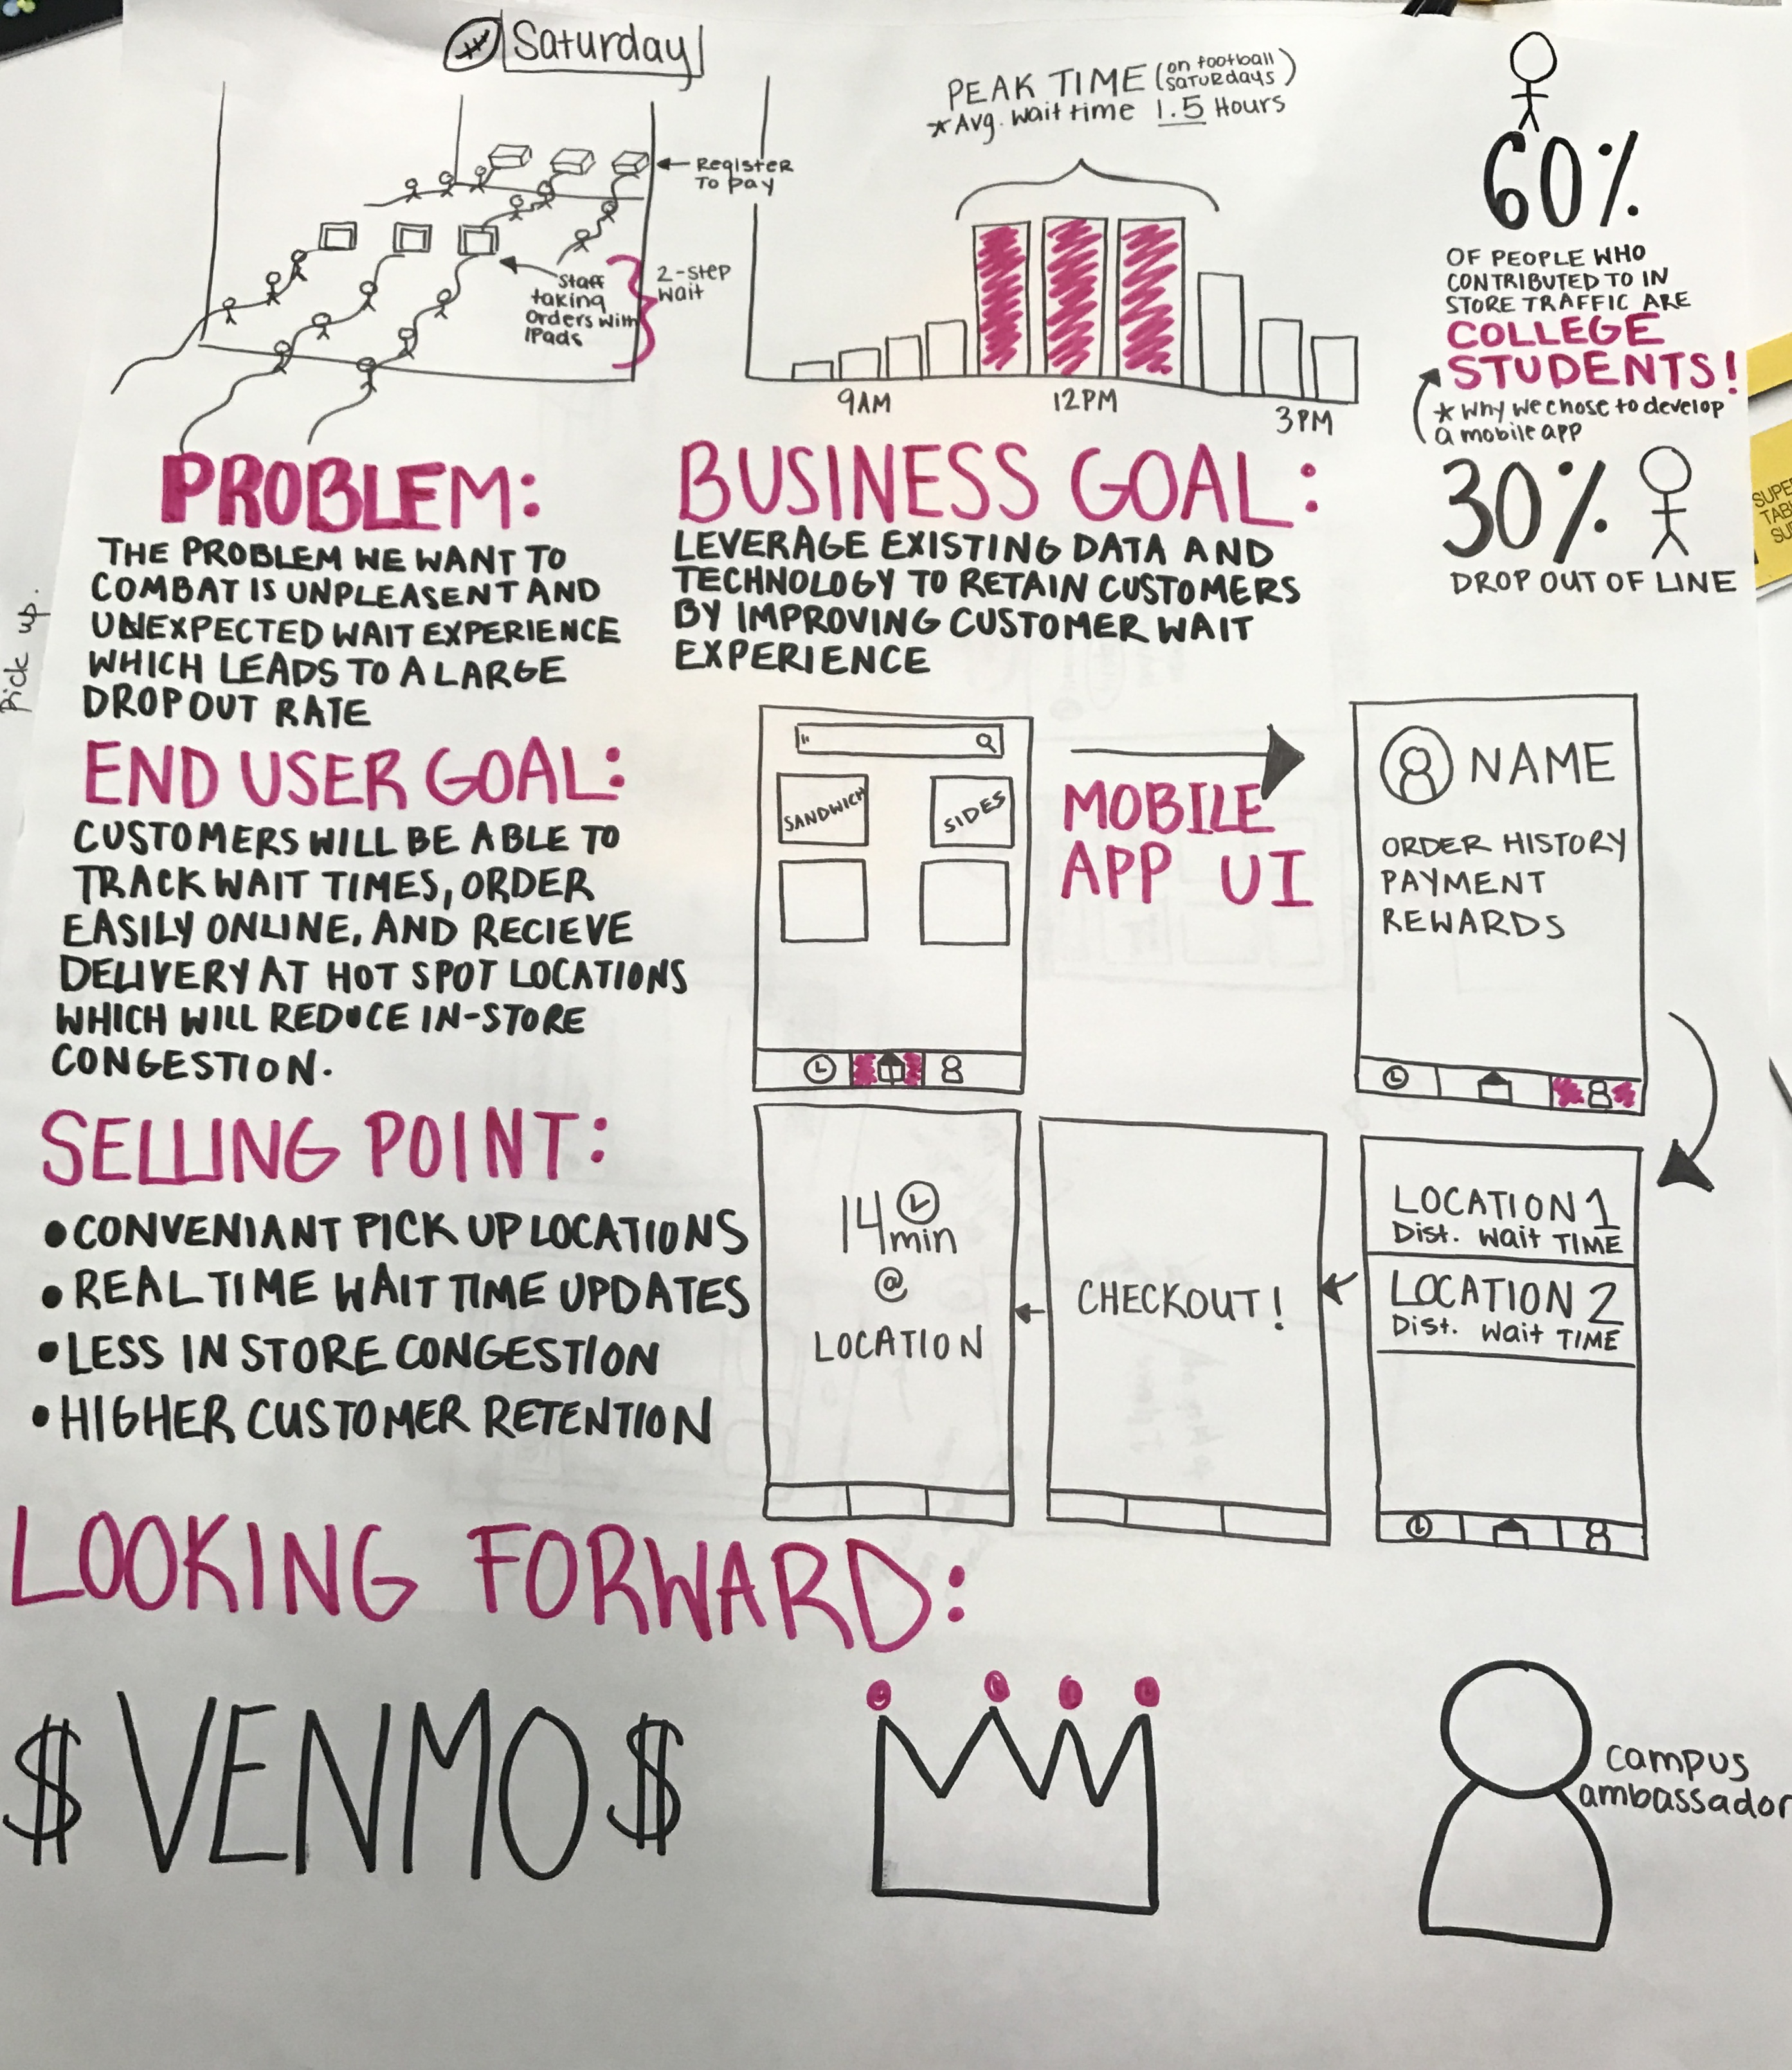 Saturday
Register
To pay
Staff
taking
Orders with
IPads
2-step
wait
PEAK TIME (on football
saturdays)
*Avg. wait time 1.5 Hours
9AM
12PM
3PM
60%
OF PEOPLE WHO
CONTRIBUTED TO IN
STORE TRAFFIC ARE
COLLEGE
STUDENTS!
* Why we chose to develop
a mobile app
30%
DROP OUT OF LINE
SUPE
TAB
SU
Pick up.
PROBLEM:
THE PROBLEM WE WANT TO
COMBAT IS UNPLEASENT AND
UNEXPECTED WAIT EXPERIENCE
WHICH LEADS TO A LARGE
DROPOUT RATE
BUSINESS GOAL:
LEVERAGE EXISTING DATA AND
TECHNOLOGY TO RETAIN CUSTOMERS
BY IMPROVING CUSTOMER WAIT
EXPERIENCE
END USER GOAL:
CUSTOMERS WILL BE ABLE TO
TRACK WAIT TIMES, ORDER
EASILY ONLINE, AND RECIEVE
DELIVERY AT HOT SPOT LOCATIONS
WHICH WILL REDUCE IN-STORE
CONGESTION.
SANDWICH
SIDES
MOBILE
APP UI
NAME
ORDER HISTORY
PAYMENT
REWARDS
SELLING POINT:
• CONVENIANT PICK UP LOCATIONS
• REAL TIME WAIT TIME UPDATES
• LESS IN STORE CONGESTION
• HIGHER CUSTOMER RETENTION
14 min
@
LOCATION
CHECKOUT!
LOCATION 1
Dist. Wait TIME
LOCATION 2
Dist. Wait TIME
LOOKING FORWARD:
$ VENMO $
campus
ambassador